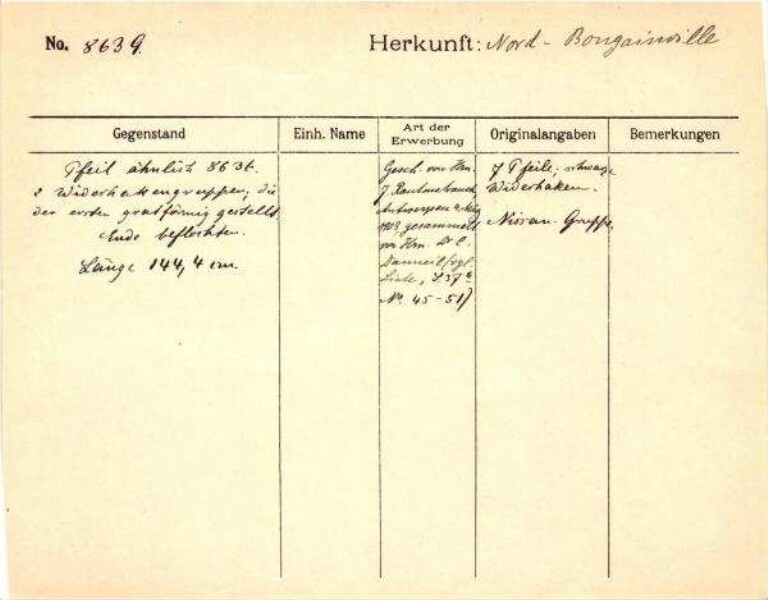 No. 8639
Herkunft: Nord-Bougainville
Gegenstand
Einh. Name
Art der Erwerbung
Originalangaben
Bemerkungen
Pfeil ähnlich 863
2 Widerhakengruppen; die
der ersten gratförmig gestellt.
Ende beflochten.
Länge 144,4 cm.
Gesch. von Hrn.
J.
Antwerpen
gesammelt
von Hrn. Dr C.
Danneil (vgl.
Liste, S 37
No. 45-51)
7 Pfeile, schwarze
Widerhaken.
Nissan-Gruppe.